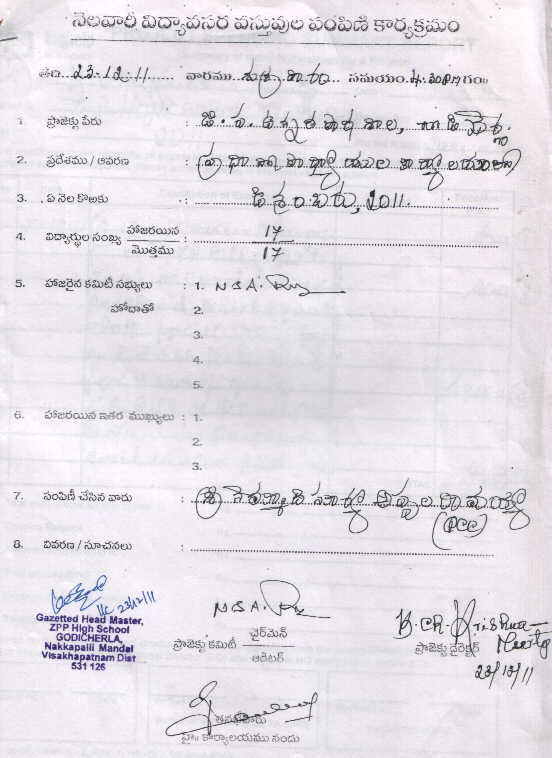 నెలవారీ విద్యావసర వస్తువుల పంపిణి కార్యక్రమం
తేది 23-12-11 వారము శుక్రవారం సమయం 4.30PM గం॥
1. ప్రాజెక్టు పేరు : జి.ప. ఉన్నత పాఠశాల, గొడిచెర్ల
2. ప్రదేశము / ఆవరణ : ప్రధానోపాధ్యాయుల కార్యాలయం
3. ఏ నెల కొఱకు : డిశంబరు, 2011.
4. విద్యార్థుల సంఖ్య హాజరయిన : 17
మొత్తము 17
5. హాజరైన కమిటీ సభ్యులు : 1. N S A.
హోదాతో 2.
3.
4.
5.
6. హాజరయిన ఇతర ముఖ్యులు : 1.
2.
3.
7. పంపిణీ చేసిన వారు : శ్రీ
8. వివరణ / సూచనలు :
23/12/11
Gazetted Head Master,
ZPP High School
GODICHERLA,
Nakkapalli Mandal
Visakhapatnam Dist
531 126
N S A.
ప్రాజెక్టు కమిటీ ఛైర్‌మెన్
ఆడిటర్
B.Ch. Krishna
Meerty
ప్రాజెక్టు డైరెక్టర్
23/12/11
హై॥ కార్యాలయము నందు